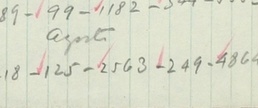 89-199-1182-
Agosti
18-125-2563-249-4864